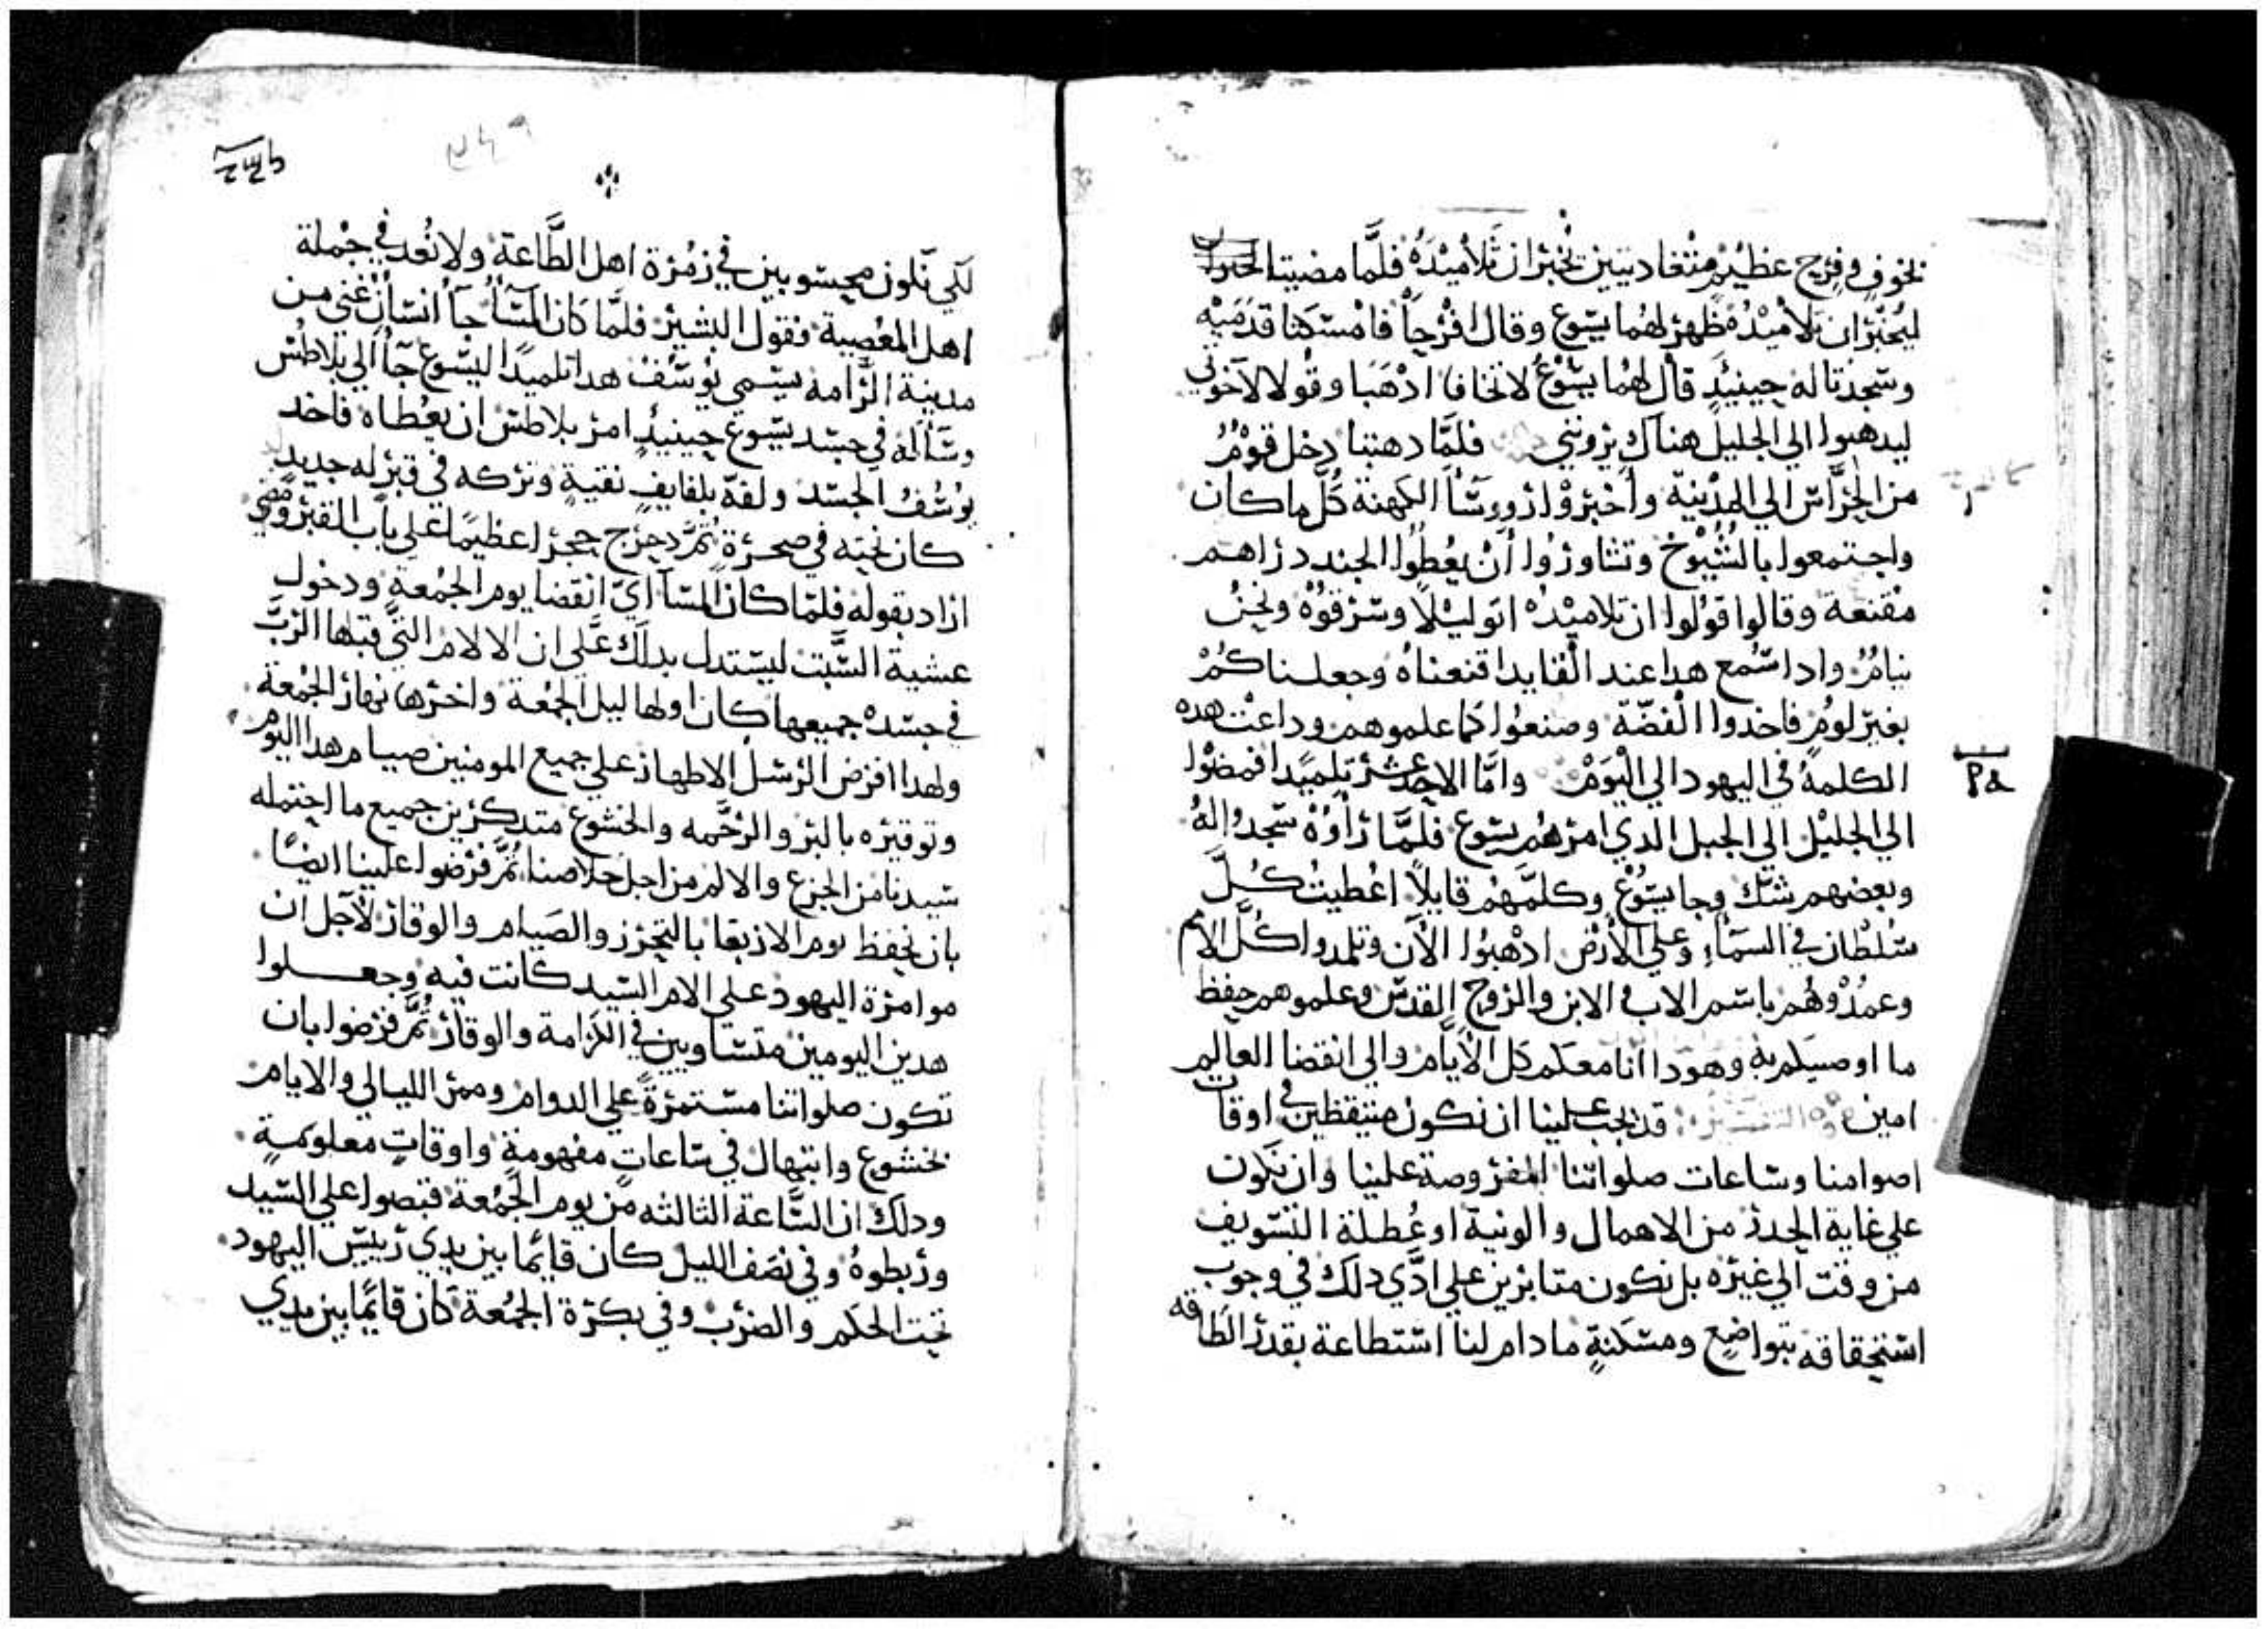 بخوفٍ وفرحٍ عظيمٍ متغاديتين تخبران تلاميده فلمّا مضيتا
ليخبّران تلاميدهُ ظهر لهُما يسوع وقال افرحاً فامسكتا قدميه
وسجدتا له حينيدٍ قال لهُما يسُوعُ لا تخافا ادهبا وقولا لاخوتي
ليدهبوا الي الجليل هناك يروني فلمّا دهبتا دخل قومٌ
من الحرّاس الي المدينة وأخبروا رووسا الكهنة كلّ ما كان
واجتمعوا بالشيُوخ وتشاوروا أن يُعطُوا الجند دراهم
مقنعة وقالوا قولوا ان تلاميدهُ اتو ليلاً وسرقوهُ ونحنُ
نيامٌ وادا سُمع هدا عند القايد اقنعناهُ وجعلناكُم
بغير لومٍ فاخدوا الفضّة وصنعُوا كما علموهم وداعت هده
الكلمةُ في اليهود الي اليوم وامّا الاحد عشر تلميدا فمضوا
الي الجليل الي الجبل الدي امرهُم يسوع فلمّا راوهُ سجدوا لهُ
وبعضهم شكّ وجا يسُوع وكلّمهُم قايلاً اعُطيتُ كُلّ
سُلطان في السمآءِ وعلي الأرض ادهبُوا الآن وتلمدوا كلّ الامم
وعمدُوهُم باسم الاب والابن والروح القدس وعلموهم حفظ
ما اوصيتكم به وهودا انا معكم كل الأيام والي انقضا العالم
امين التفسير قد يجب علينا ان نكون متيقظين في اوقات
اصوامنا وساعات صلواتنا المفروصة علينا وان نكون
علي غاية الحدر من الاهمال والونية او عُطلة التسويف
من وقت الي غيره بل نكون متابرين علي ادّي دلك في وجوب
استحقاقه بتواضعٍ ومسكنةٍ ما دام لنا استطاعة بقدر الطاقه
لكي نكون محسوبين في زمُرة اهل الطّاعة ولا نُعد في جُملة
اهل المعُصية فقول البشير فلمّا كان المسآ جآ انسان غني من
مدينة الرّامه يسمي يوسُف هدا تلميدًا ليسُوع جآ الي بلاطس
وسأله في جسد يسوع حينيدٍ امر بلاطس ان يعُطاه فاخد
يوسُفُ الجسد ولفهّ بلفايفٍ نقيةٍ وتركه في قبر له جديد
كان نحته في صحرةٍ ثمّ دحرج حجرا عظيمًا علي باب القبر ومضي
اراد بقوله فلمّا كان المسآ اي انقضا يوم الجمُعةِ ودخول
عشية السّبت ليستدل بدلك علي ان الالام التّي قبلها الربّ
في جسدهُ جميعها كان اولها ليل الجمُعة واخرها نهار الجمُعة
ولهدا افرض الرسل الاطهار علي جميع المومنين صيام هدا اليوم
وتوقيره بالبر والرحّمه والخشوع متدكرين جميع ما احتمله
سيدنا من الجزع والالم من اجل خلاصنا ثمّ فرضوا علينا ايضًا
بان نحفظ يوم الاربعا بالتحرز والصيام والوقار لاجل ان
موامرة اليهود علي الام السيد كانت فيه وجعلوا
هدين اليومين متساويين في الكرامة والوقار ثمّ فرضوا بان
تكون صلواتنا مستمرةً علي الدوام وممر الليالي والايام
بخشوع وابتهال في ساعاتٍ مفهومةٍ واوقاتٍ معلومةٍ
ودلك ان السّاعة التالته من يوم الجمُعة قبصوا علي السيد
وربطوهُ وفي نصف الليل كان قايمًا بين يدي رييس اليهود
تحت الحكم والضرب وفي بكرة الجمُعة كان قايمًا بين يدي